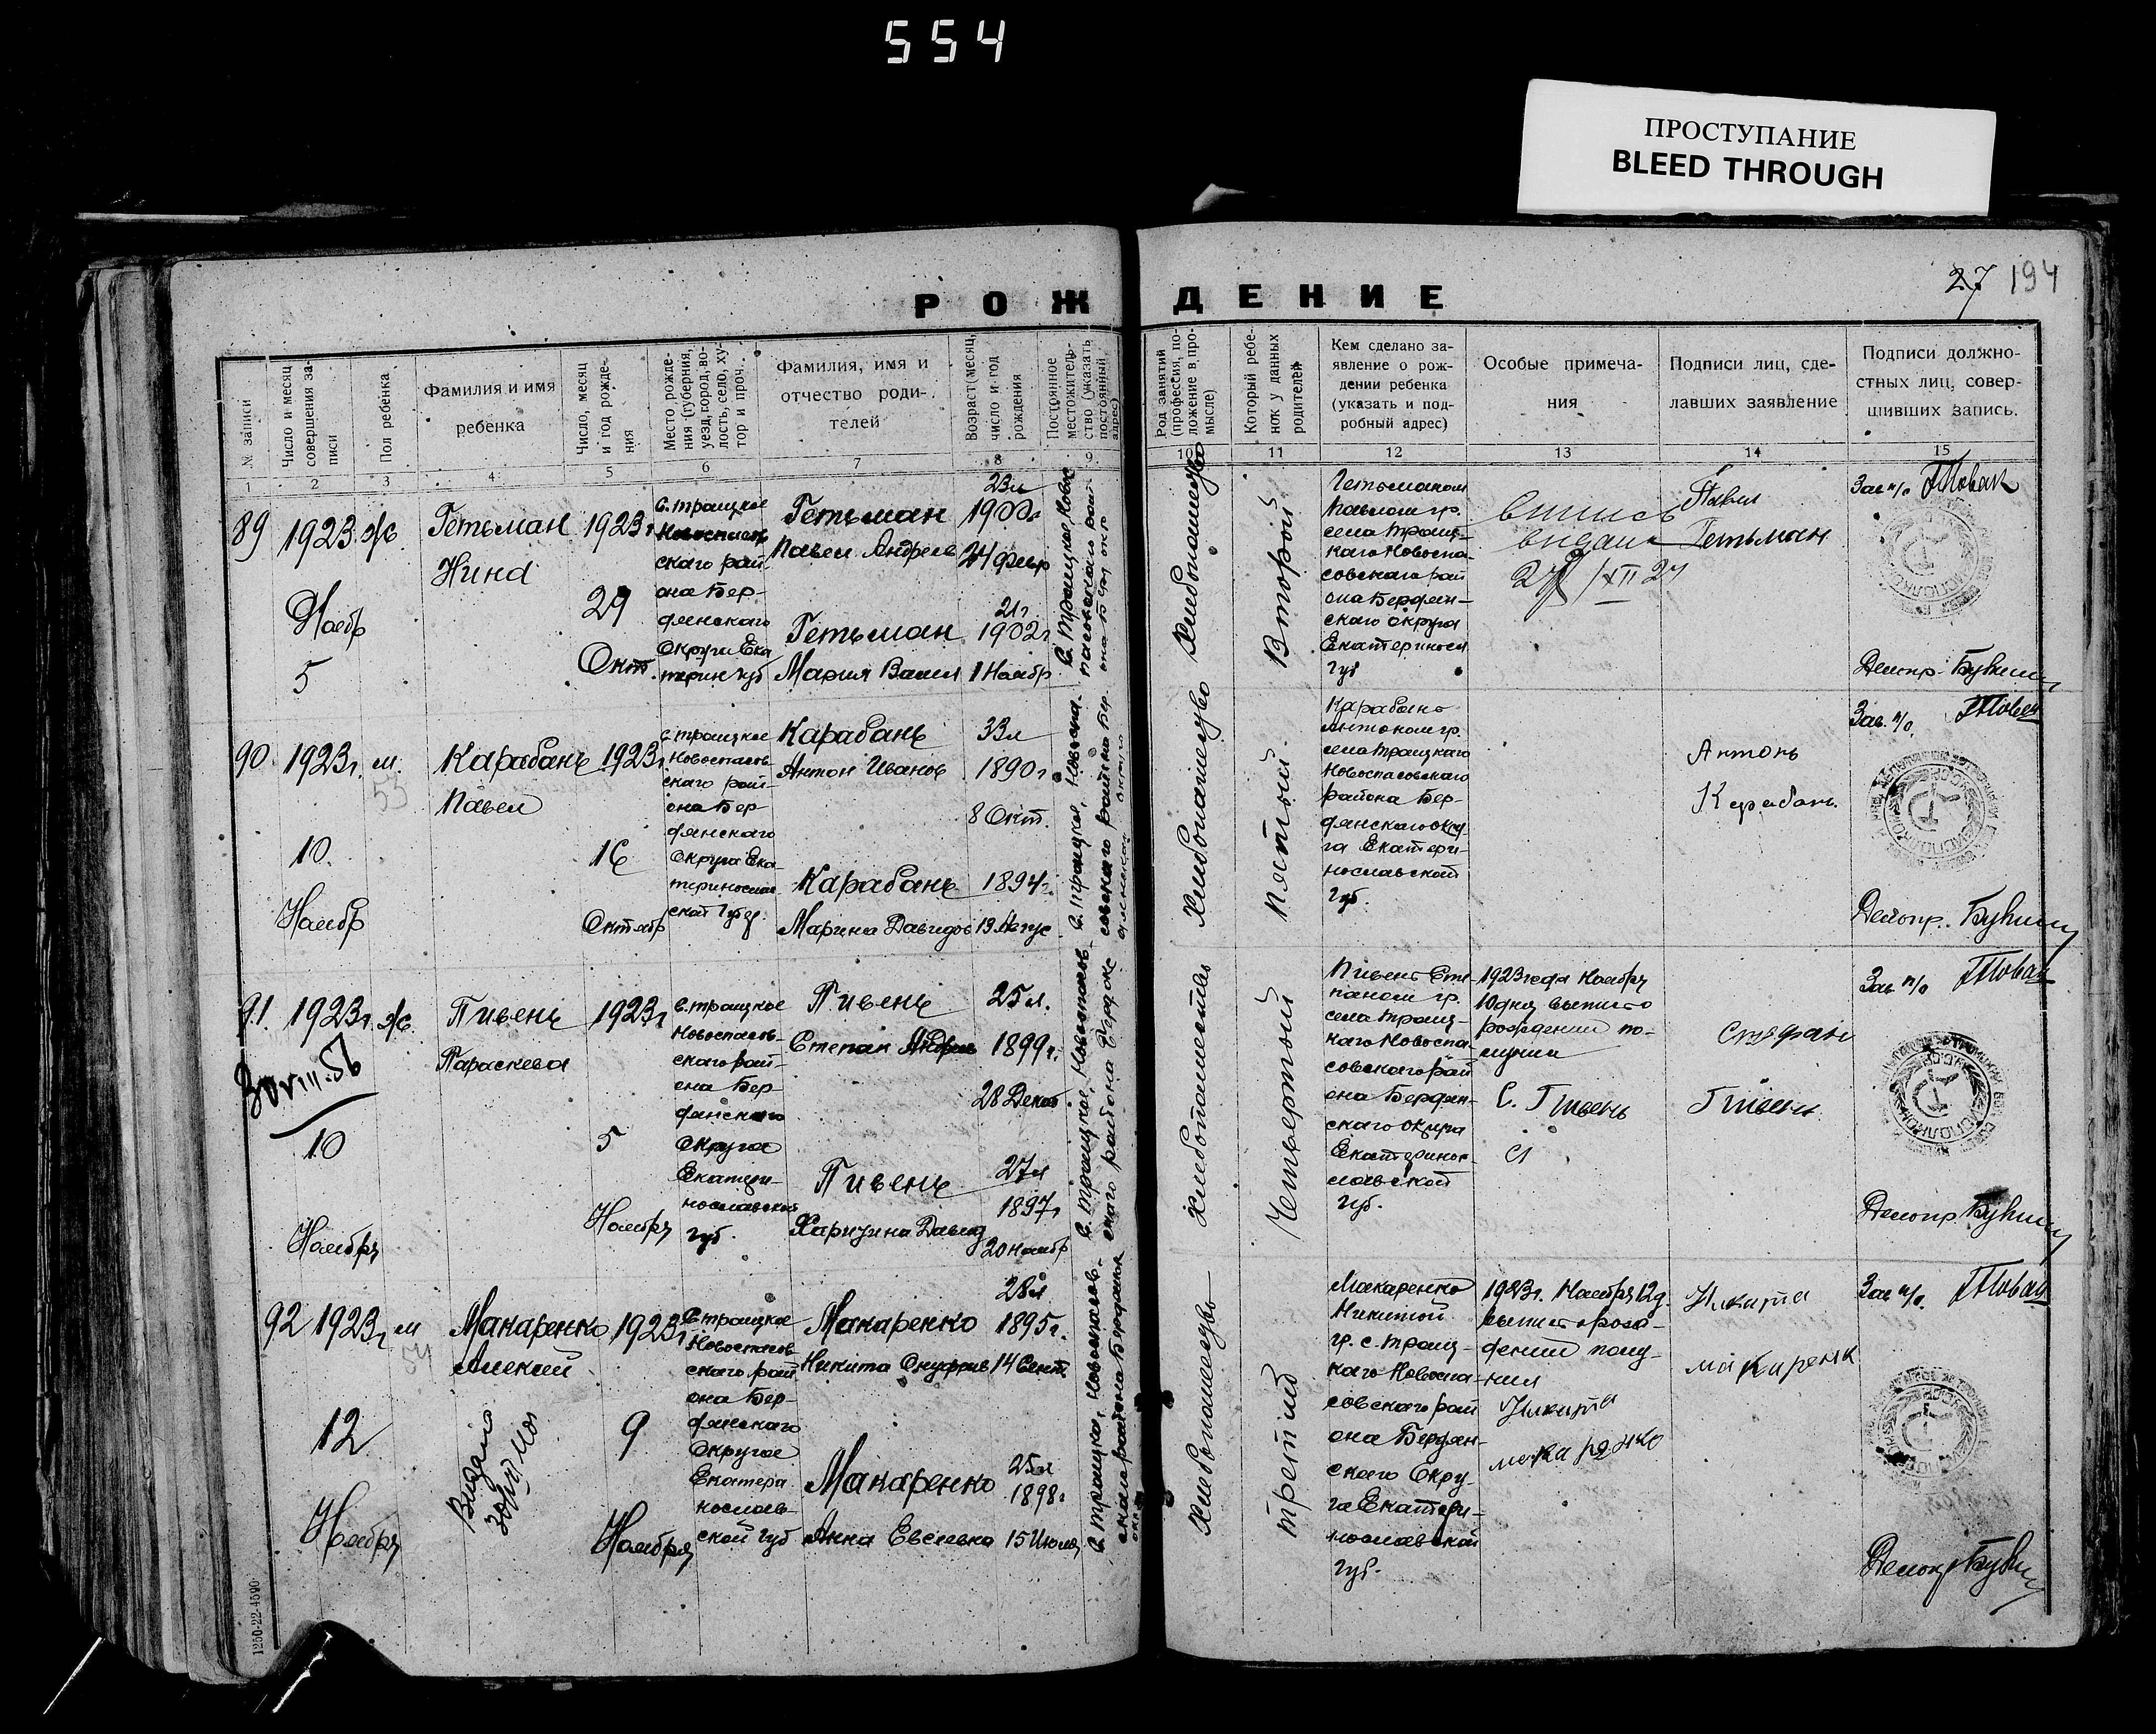 554
ПРОСТУПАНИЕ
BLEED THROUGH
27 194
РОЖДЕНИЕ
№ записи
Число и месяц
совершения за-
писи
Пол ребенка
Фамилия и имя
ребенка
Число, месяц
и год рожде-
ния
Место рожде-
ния (губерния,
уезд, город, во-
лость, село, ху-
тор и проч.
Фамилия, имя и
отчество роди-
телей
Возраст (месяц,
число и год
рождения
Постоянное
местожитель-
ство (указать
постоянный
адрес)
Род занятий
(профессия, по-
ложение в про-
мысле)
Который ребе-
нок у данных
родителей
Кем сделано за-
явление о рож-
дении ребенка
(указать и под-
робный адрес)
Особые примеча-
ния
Подписи лиц, сде-
лавших заявление
Подписи должно-
стных лиц, совер-
шивших запись.
1 2 3 4 5 6 7 8 9 10 11 12 13 14 15
89
1923
Ноябр
5
ж
Гетьман
Нина
1923г
29
Окт.
с. троицкое
Новоспасов
скаго рай-
она Бер-
дянскаго
Округа Ека
терин губ
Гетьман
Павел Андреев
Гетьман
Мария Васил
23л
1900г
24 февр
21г
1902г
1 Ноябр
Хлебопашество
Второй
Гетьманом
Павлом гр.
села Троиц-
каго Новоспа-
совскаго рай
она Бердян-
скаго округа
Екатериносл
губ
27/XII 27
Павел
Гетьман
Зав п/о
Делопр.
90
1923г.
10.
Ноябр
м.
53
Карабань
Павел
1923г
16
Октябр
с. троицкое
Новоспасов-
скаго рай-
она Бер-
дянскаго
Округа Ека
теринослав
ской Губ.
Карабань
Антон Иванов
Карабань
Марина Давидов
33л
1890г
8 Окт.
1894г.
13 Авгус
Хлебопашество
пястый
Карабань
Антоном гр.
села Троицкаго
Новоспасовскаго
района Бер-
дянскаго окру
га Екатери-
нославской
Губ.
Антонь
Карабань
Зав. п/о.
Делопр.
91.
1923г.
10
Ноября
ж.
Пивень
Параскева
1923г
5
Ноября
с. троицкое
Новоспасов-
скаго рай-
она Бер-
дянскаго
Округа
Екатери-
нославской
губ.
Пивень
Степан Андреев
Пивень
Харитина Давид
25л.
1899г.
28 Декаб
27л
1897г
20 ноябр
Четвертый
Пивень Сте-
паном гр.
села Троиц-
каго Новоспа-
совскаго рай
она Бердян-
скаго округа
Екатеринос-
лавской
Губ.
1923 года Ноября
10 дня выпись о
рождении по-
лучил
С. Пивень
Стефан
Пивень
Зав п/о
Делопр.
92
1923г
12
Ноября
м
54
Макаренко
Алексий
1923г
9
Ноября
с. троицкое
Новоспасов
скаго рай
она Бер-
дянскаго
Округа
Екатери
нослав-
ской губ
Макаренко
Никита Онуфрив
Макаренко
Анна Евсеевна
28л
1895г.
14 Сент
25л
1898г
15 Июля
Хлебопашество
третий
Макаренко
Никитой
гр. с. Троиц-
каго Новоспа-
совскаго рай
она Бердян-
скаго Окру-
га Екатери-
нославской
губ.
1923г. Ноября 12 д.
выпись о рож-
дении полу-
чил
Никита
макаренко
Никита
макаренк
Зав п/о.
Делопр
1250-22-4590